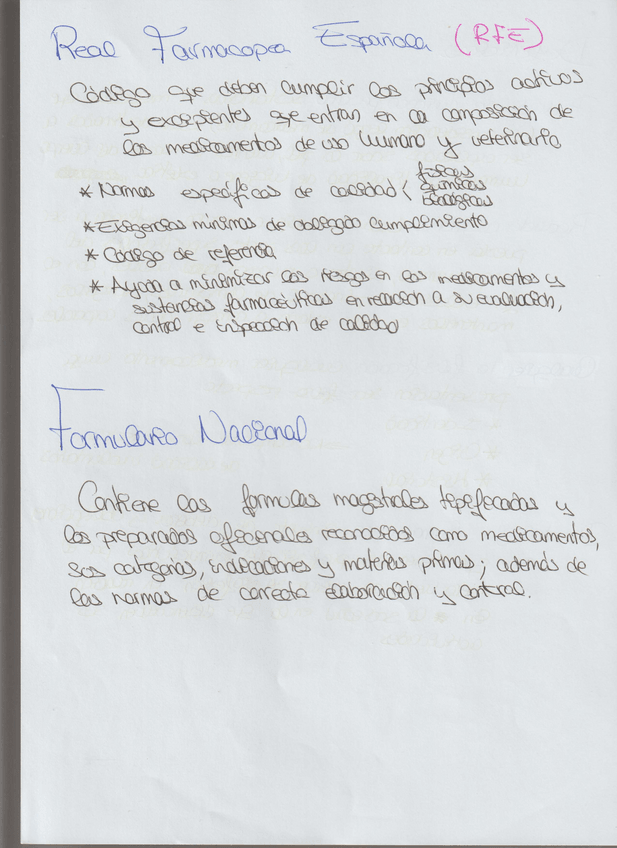 Real Farmacopea Española (RFE)
Código que deben cumplir los principios activos
y excipientes que entran en la composición de
los medicamentos de uso humano y veterinario
* Normas específicas de calidad < físicas
químicas
biológicas
* Exigencias mínimas de obligado cumplimiento
* Código de referencia
* Ayuda a minimizar los riesgos en los medicamentos y
sustancias farmacéuticas en relación a su evaluación,
control e inspección de calidad
Formulario Nacional
Contiene las formulas magistrales tipificadas y
los preparados oficinales reconocidos como medicamentos,
sus categorías, indicaciones y materias primas; además de
las normas de correcta elaboración y control.